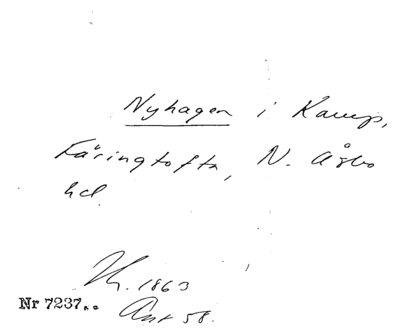 Nyhagen i Kamp,
Färingtofta, N. Åsbo
hd.
K. 1863
Nr 7237..
Ant 58.